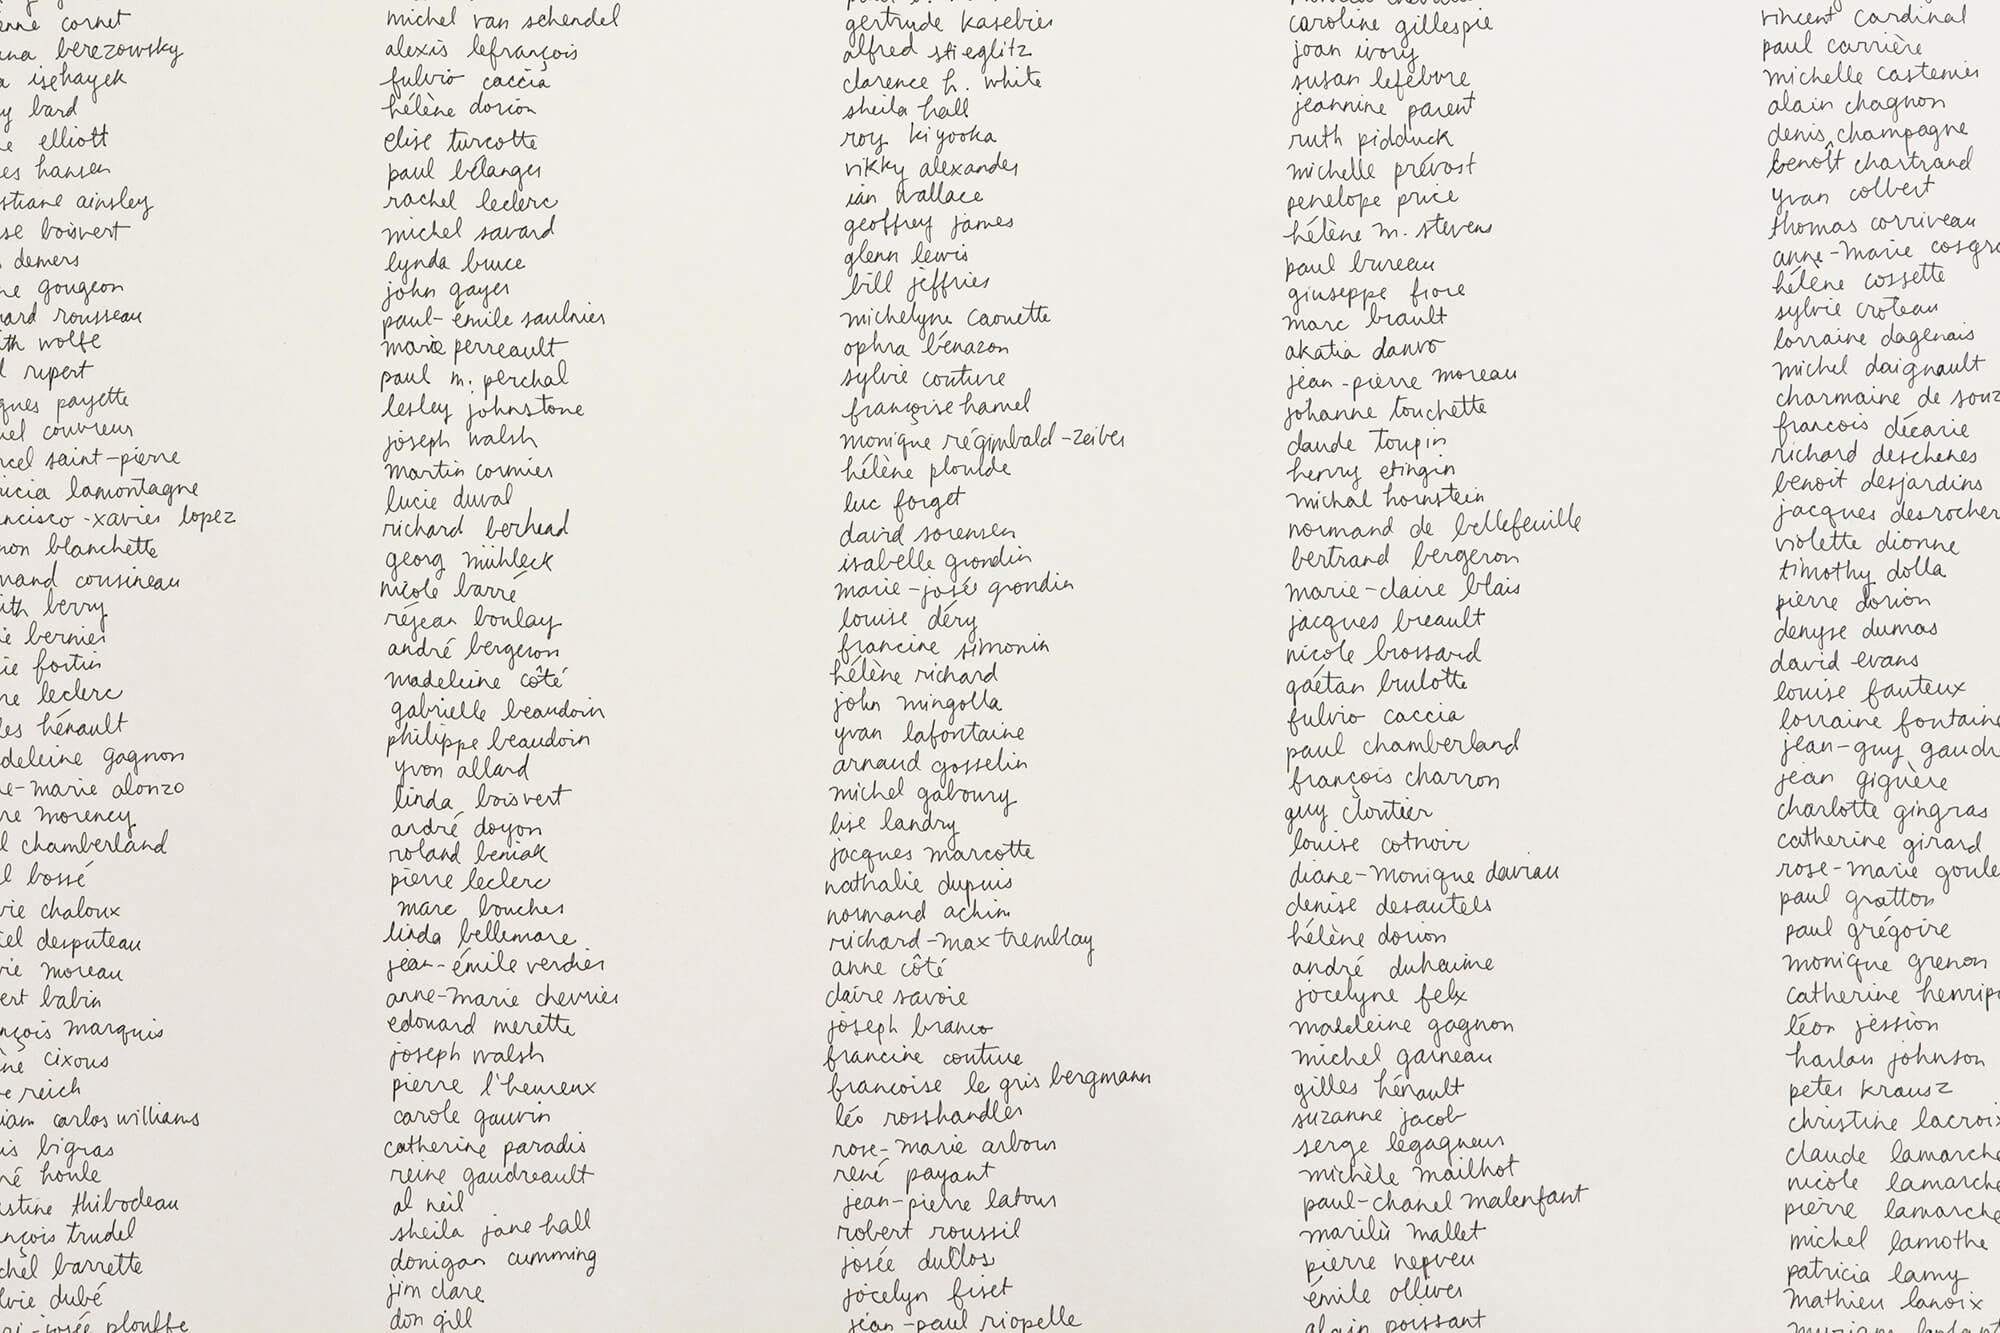 cornet
berezowsky
isehayek
bard
elliott
hansen
ainsley
boisvert
demers
gougeon
rousseau
wolfe
rupert
payette
couvreur
saint-pierre
lamontagne
-xavier lopez
blanchette
cousineau
berry
bernier
fortin
leclerc
hénault
gagnon
-marie alonzo
morency
chamberland
bossé
chaloux
desputeau
moreau
babin
marquis
cixous
reich
carlos williams
bigras
houle
thibodeau
trudel
barrette
dubé
-josée plouffe
michel van schendel
alexis lefrançois
fulvio caccia
hélène dorion
elise turcotte
paul bélanger
rachel leclerc
michel savard
lynda bruce
john gayer
paul-émile saulnier
marie perreault
paul m. perchal
lesley johnstone
joseph walsh
martin cormier
lucie duval
richard berhead
georg mühleck
nicole barré
réjean boulay
andré bergeron
madeleine côté
gabrielle beaudoin
philippe beaudoin
yvon allard
linda boisvert
andré doyon
roland beniak
pierre leclerc
marc boucher
linda bellemare
jean-émile verdier
anne-marie chevrier
edouard merette
joseph walsh
pierre l'heureux
carole gauvin
catherine paradis
reine gaudreault
al neil
sheila jane hall
donigan cumming
jim clare
don gill
gertrude kasebier
alfred stieglitz
clarence h. white
sheila hall
roy kiyooka
vikky alexander
ian wallace
geoffrey james
glenn lewis
bill jeffries
michelyne caouette
ophra bénazon
sylvie couture
françoise hamel
monique régimbald-zeiber
hélène ploulde
luc forget
david sorensen
isabelle grondin
marie-josé grondin
louise déry
francine simonin
hélène richard
john mingolla
yvan lafontaine
arnaud gosselin
michel gaboury
lise landry
jacques marcotte
nathalie dupuis
normand achim
richard-max tremblay
anne côté
claire savoie
joseph branco
francine couture
francoise le gris bergmann
léo rosshandler
rose-marie arbour
rené payant
jean-pierre latour
robert roussil
josée dullos
jocelyn fiset
jean-paul riopelle
caroline gillespie
joan ivory
susan lefebvre
jeannine parent
ruth pidduck
michelle prévost
penelope price
hélène m. stevens
paul bureau
giuseppe fiore
marc brault
akatia danvo
jean-pierre moreau
johanne touchette
claude toupin
henry etingin
michal hornstein
normand de bellefeuille
bertrand bergeron
marie-claire blais
jacques breault
nicole brossard
gaétan brulotte
fulvio caccia
paul chamberland
françois charron
guy cloutier
louise cotnoir
diane-monique daviau
denise desautels
hélène dorion
andré duhaime
jocelyne felx
madeleine gagnon
michel garneau
gilles hénault
suzanne jacob
serge legagneur
michèle mailhot
paul-chanel malenfant
marilù mallet
pierre nepveu
émile ollivier
alain poissant
vincent cardinal
paul carrière
michelle castenier
alain chagnon
denis champagne
benoît chartrand
yvan colbert
thomas corriveau
anne-marie cosgro
hélène cossette
sylvie croteau
lorraine dagenais
michel daignault
charmaine de souz
francois décarie
richard deschenes
benoit desjardins
jacques desrocher
violette dionne
timothy dolla
pierre dorion
denyse dumas
david evans
louise fauteux
lorraine fontaine
jean-guy gaudr
jean giguère
charlotte gingras
catherine girard
rose-marie goule
paul gratton
paul grégoire
monique grenon
catherine henrip
léon jession
harlan johnson
peter krausz
christine lacroix
claude lamarche
nicole lamarche
pierre lamarche
michel lamothe
patricia lamy
mathieu lanoix